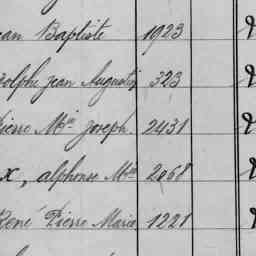 ean Baptiste 1923
dolphe Jean Augustin 323
Pierre Mie Joseph 2431
x, alphonse Mie 2068
René Pierre Marie 1221